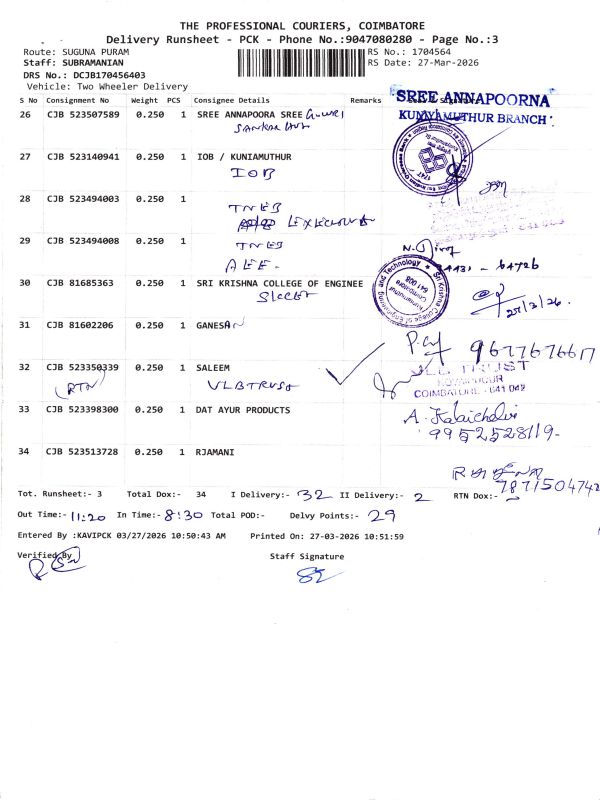 THE PROFESSIONAL COURIERS, COIMBATORE
Delivery Runsheet - PCK - Phone No.:9047080280 - Page No.:3
Route: SUGUNA PURAM
RS No.: 1704564
Staff: SUBRAMANIAN
RS Date: 27-Mar-2026
DRS No.: DCJB170456403
Vehicle: Two Wheeler Delivery
S No Consignment No Weight PCS Consignee Details Remarks
SREE ANNAPOORNA
KUNIYAMUTHUR BRANCH
26 CJB 523507589 0.250 1 SREE ANNAPOORA SREE GOWRI
27 CJB 523140941 0.250 1 IOB / KUNIAMUTHUR
IOB
28 CJB 523494003 0.250 1
TNEB
29 CJB 523494008 0.250 1
TNEB
AEE.
30 CJB 81685363 0.250 1 SRI KRISHNA COLLEGE OF ENGINEE
Sri Krishna College of Engineering and Technology
Kuniamuthur
Coimbatore
641 008
31 CJB 81602206 0.250 1 GANESAN
9677676617
32 CJB 523350339 0.250 1 SALEEM
(RTN) VLBTRUST
VLB TRUST
KOVAIPUDUR
COIMBATORE - 641 042
33 CJB 523398300 0.250 1 DAT AYUR PRODUCTS
A. Kalaichelvi
9952528119-
34 CJB 523513728 0.250 1 RJAMANI
7871504742
Tot. Runsheet:- 3 Total Dox:- 34 I Delivery:- 32 II Delivery:- 2 RTN Dox:-
Out Time:- 11:20 In Time:- 8:30 Total POD:- Delvy Points:- 29
Entered By :KAVIPCK 03/27/2026 10:50:43 AM Printed On: 27-03-2026 10:51:59
Verified By
Staff Signature